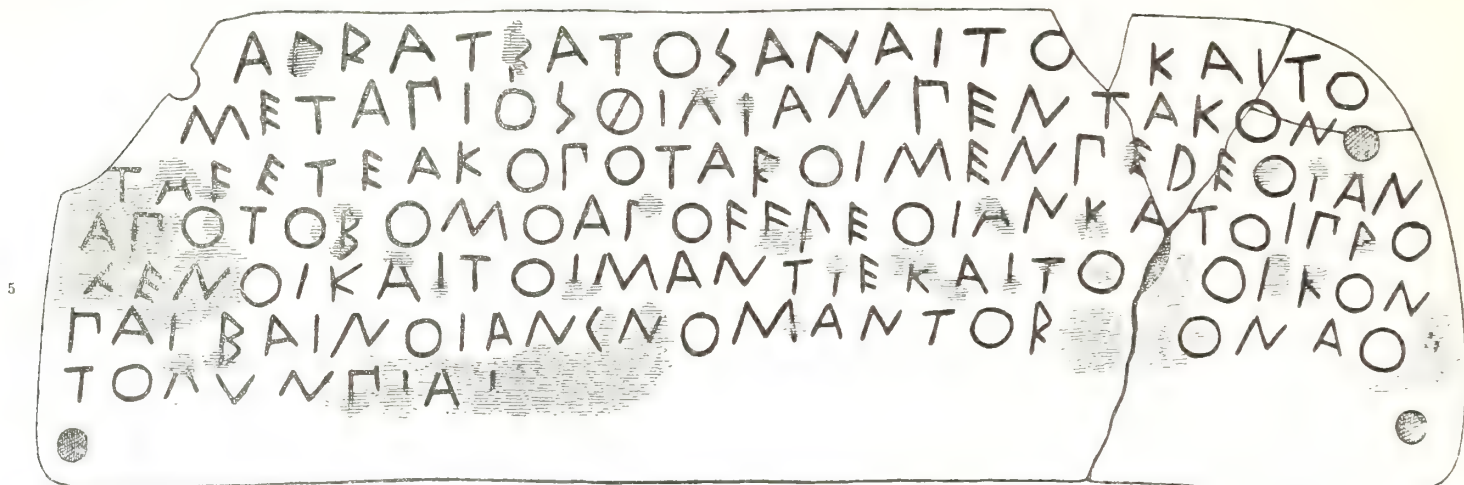 ΑΘΡΑΤΡΑΤΟΣΑΝΑΙΤΟ ΚΑΙΤΟ
ΜΕΤΑΠΙΟΣΦΙΛΙΑΝΠΕΝΤΑΚΟΝ
ΤΑϜΕΤΕΑΚΟΠΟΤΑΡΟΙΜΕΝΠΕΔΕΟΙΑΝ
ΑΠΟΤΟΒΟΜΟΑΠΟϜΕΛΕΟΙΑΝΚΑΤΟΙΠΡΟ
ΧΕΝΟΙΚΑΙΤΟΙΜΑΝΤΙΕΚΑΙΤΟ ΟΙΚΟΝ
ΠΑΡΒΑΙΝΟΙΑΝΣΝΟΜΑΝΤΟΡ ΟΝΑΟ
ΤΟΛΥΝΠΙΑΙ
5